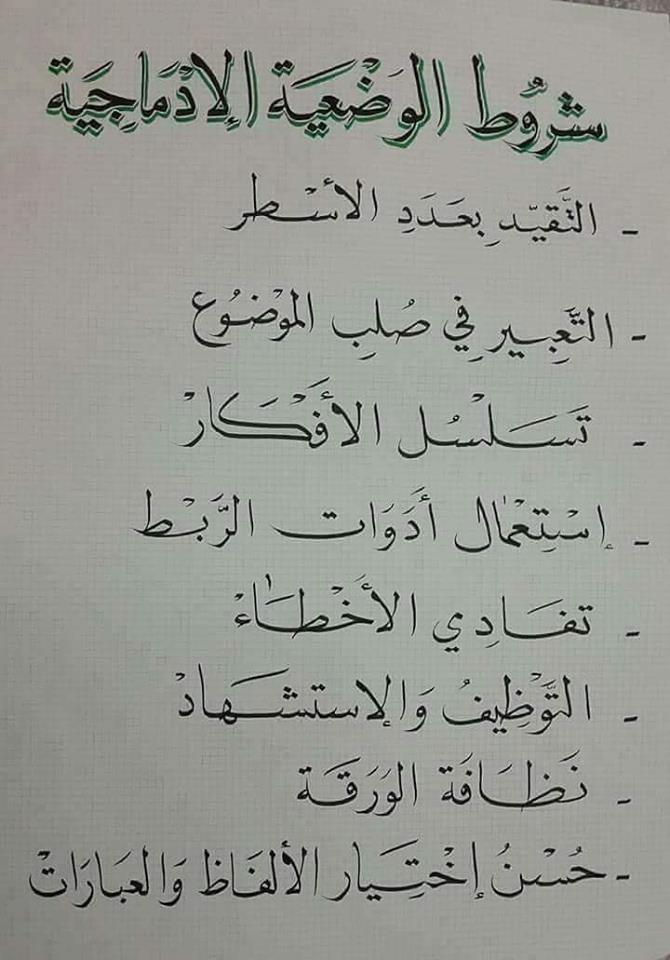 شروط الوَضْعَية الإِدْمَاجِيَة
- التَّقيّد بِعَدَدِ الأسْطر
- التَّعبِير فِي صُلبِ الموْضُوع
- تَسَلسُل الأَفْكَارْ
- إسْتِعْمال أَدَوَات الرَّبْط
- تفَادِي الأَخْطَاءْ
- التَّوْظِيفُ وَالإستشهَادْ
- نَظَافَة الوَرَقَة
- حُسْنُ إخْتِيَار الألفَاظ وَالعبَارَاتْ